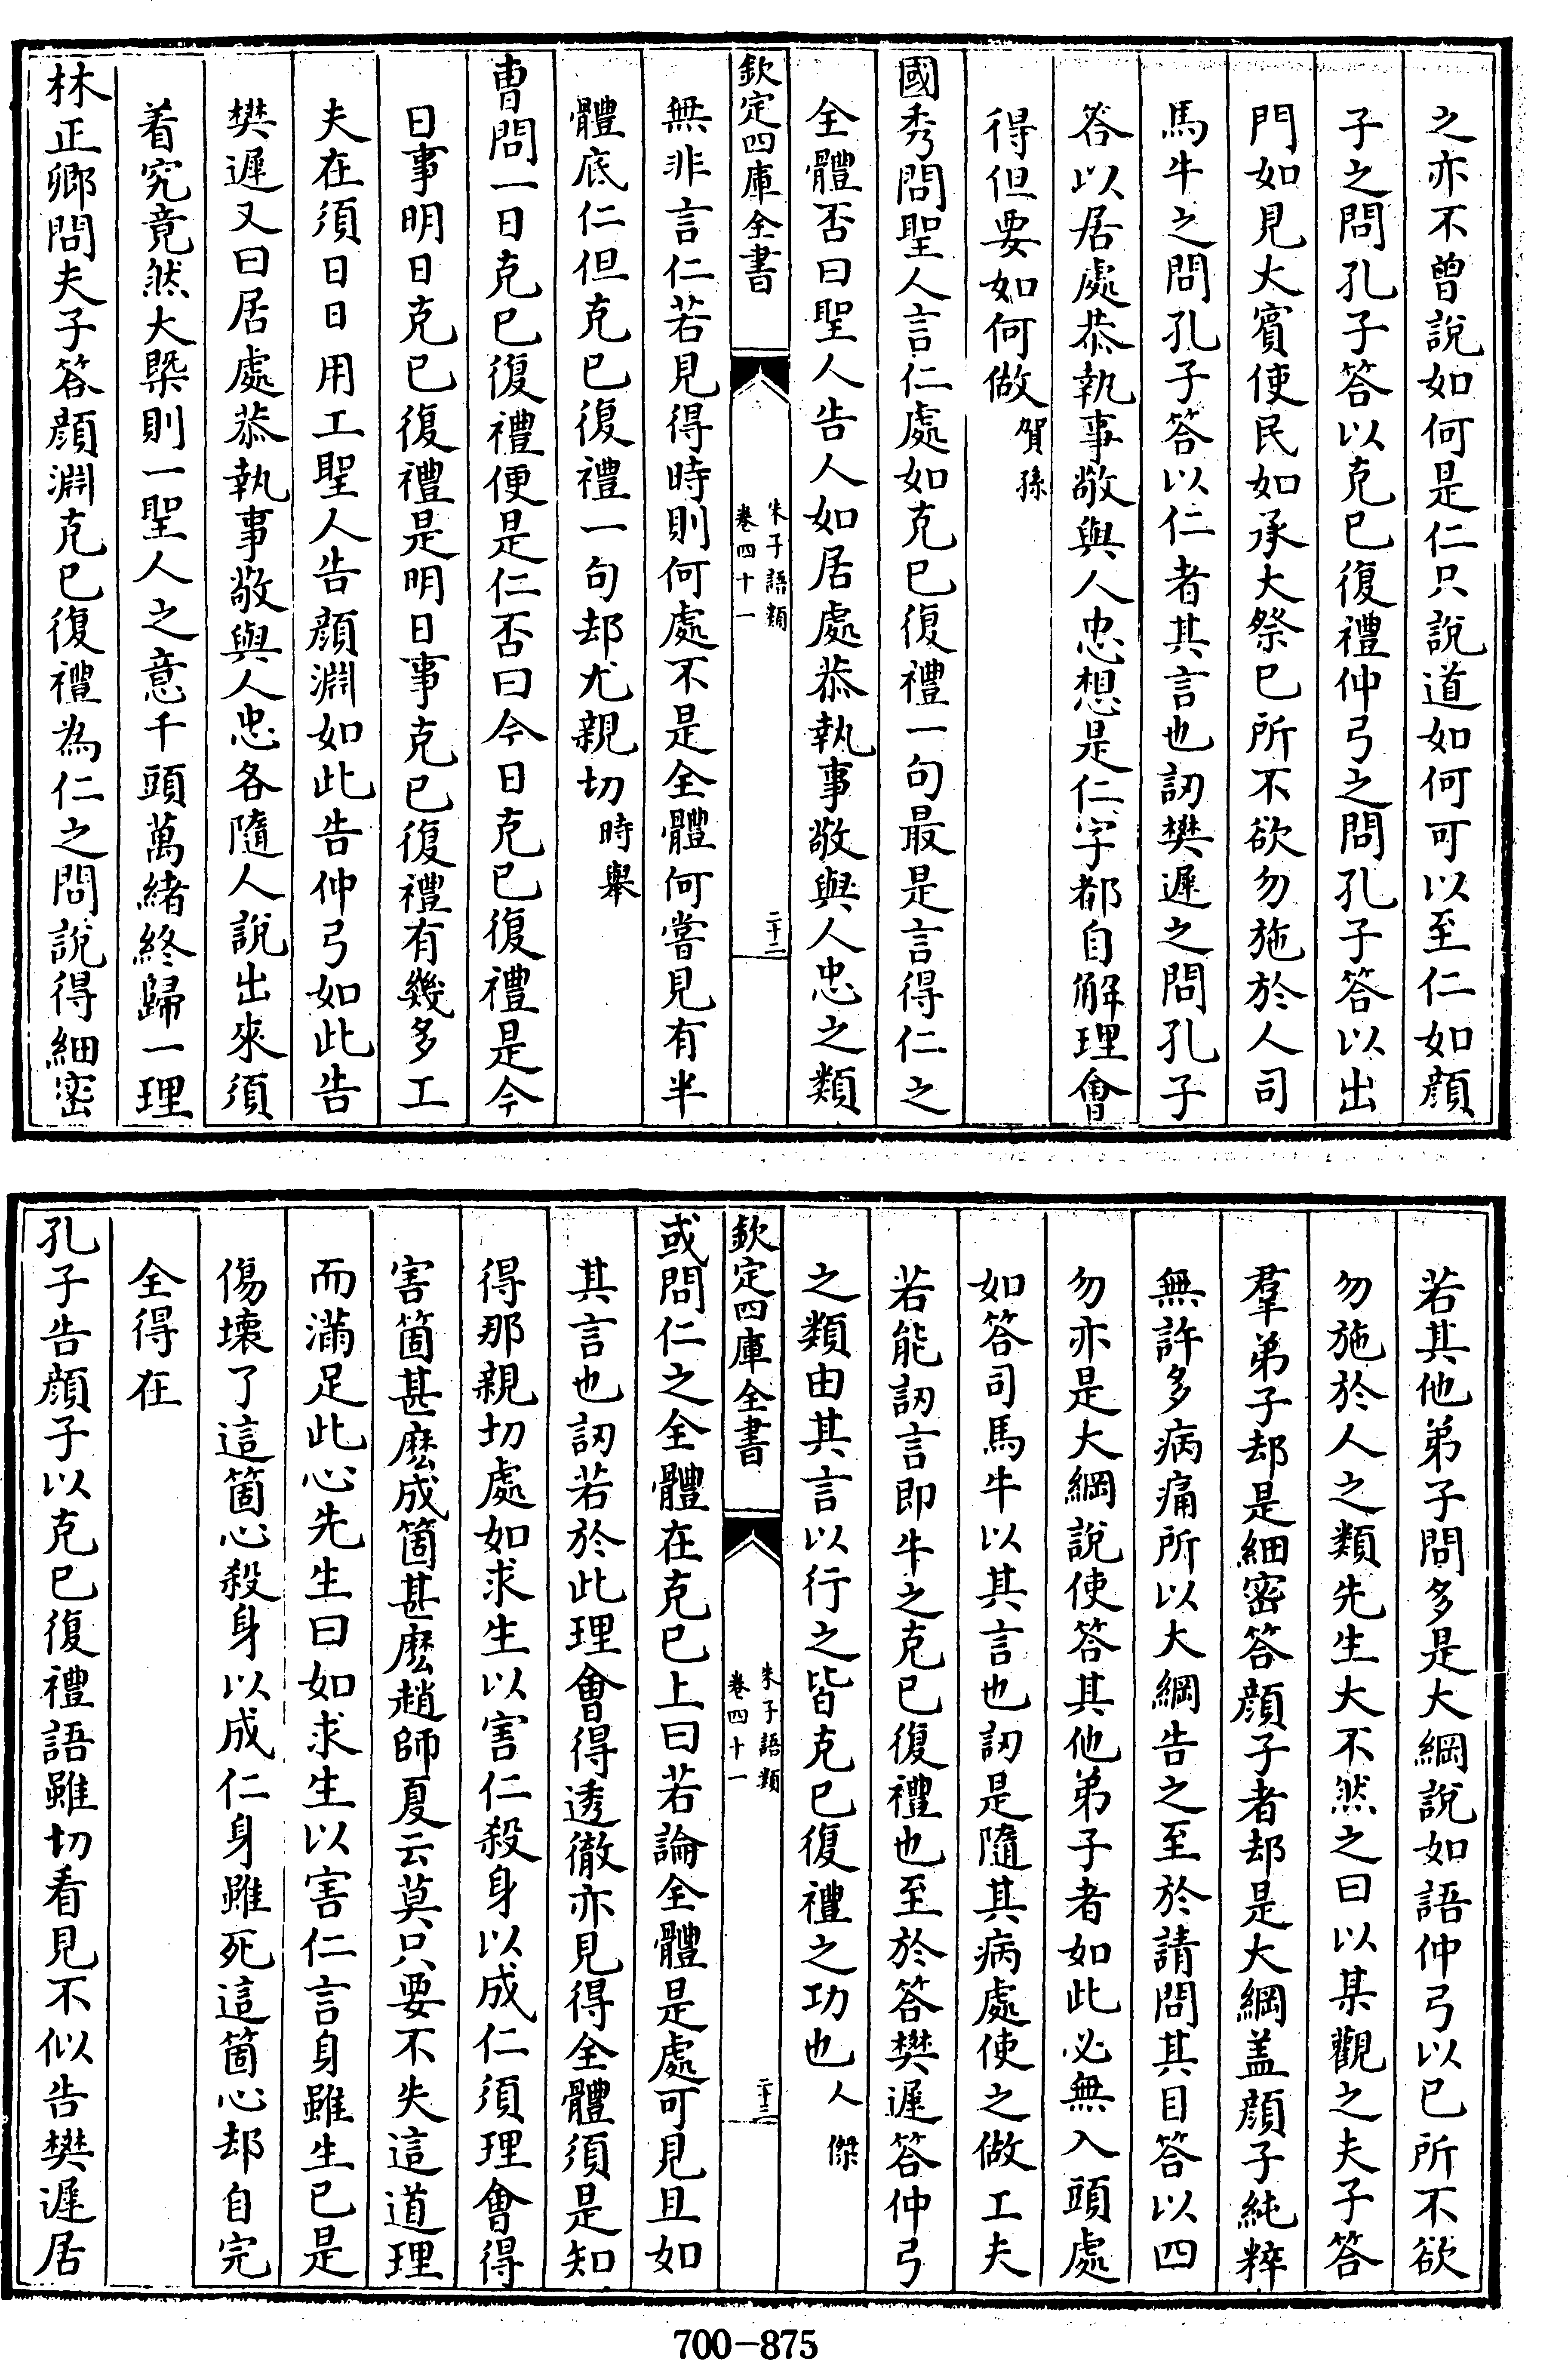 之亦不曾說如何是仁只說道如何可以至仁如顔
子之問孔子答以克已復禮仲弓之問孔子答以出
門如見大賓使民如承大祭已所不欲勿施於人司
馬牛之問孔子答以仁者其言也訒樊遲之問孔子
答以居處恭執事敬與人忠想是仁字都自解理會
得但要如何做賀孫
國秀問聖人言仁處如克已復禮一句最是言得仁之
全體否曰聖人告人如居處恭執事敬與人忠之類
欽定四庫全書
朱子語類
卷四十一
二十二
無非言仁若見得時則何處不是全體何嘗見有半
體底仁但克已復禮一句却尤親切時舉
曺問一日克已復禮便是仁否曰今日克已復禮是今
日事明日克已復禮是明日事克已復禮有幾多工
夫在須日日用工聖人告顔淵如此告仲弓如此告
樊遲又曰居處恭執事敬與人忠各隨人說出來須
着究竟然大槩則一聖人之意千頭萬緒終歸一理
林正卿問夫子答顔淵克已復禮為仁之問說得細密
若其他弟子問多是大綱說如語仲弓以已所不欲
勿施於人之類先生大不然之曰以某觀之夫子答
羣弟子却是細密答顔子者却是大綱盖顔子純粹
無許多病痛所以大綱告之至於請問其目答以四
勿亦是大綱說使答其他弟子者如此必無入頭處
如答司馬牛以其言也訒是隨其病處使之做工夫
若能訒言即牛之克已復禮也至於答樊遲答仲弓
之類由其言以行之皆克已復禮之功也人傑
欽定四庫全書
朱子語類
卷四十一
二十三
或問仁之全體在克已上曰若論全體是處可見且如
其言也訒若於此理會得透徹亦見得全體須是知
得那親切處如求生以害仁殺身以成仁須理會得
害箇甚麽成箇甚麽趙師夏云莫只要不失這道理
而滿足此心先生曰如求生以害仁言身雖生已是
傷壞了這箇心殺身以成仁身雖死這箇心却自完
全得在
孔子告顔子以克已復禮語雖切看見不似告樊遲居
700-875